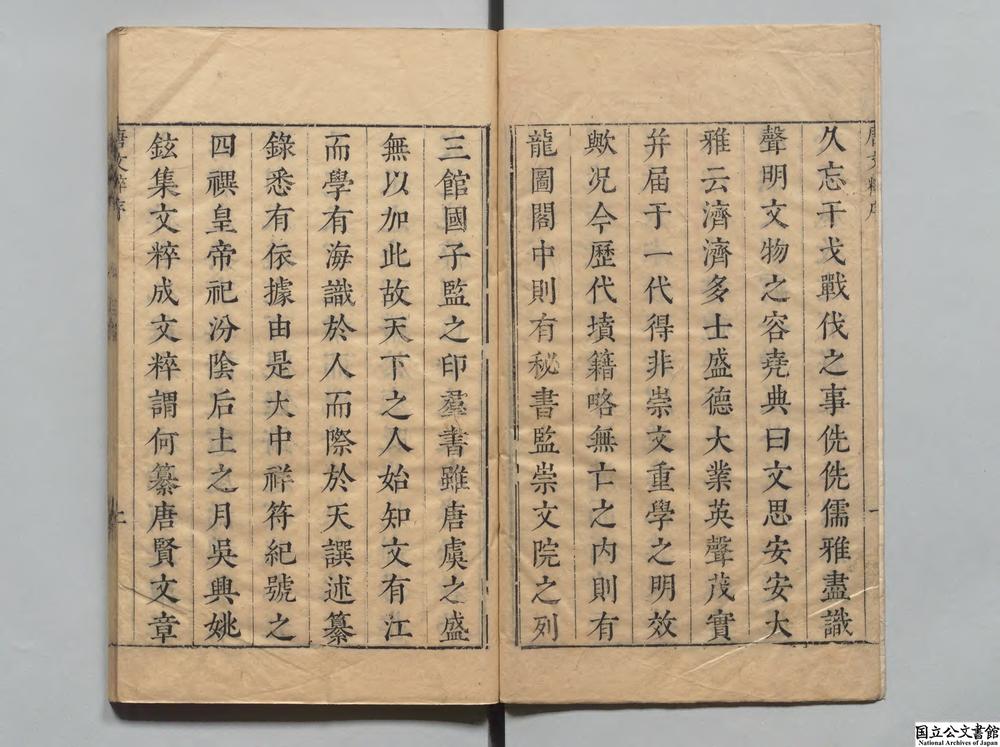 久忘干戈戰伐之事侁侁儒雅盡識
聲明文物之容堯典曰文思安安大
雅云濟濟多士盛德大業英聲茂實
并届于一代得非崇文重學之明效
歟况今歷代墳籍略無亡之内則有
龍圖閣中則有秘書監崇文院之列
三館國子監之印羣書雖唐虞之盛
無以加此故天下之人始知文有江
而學有海識於人而際於天譔述纂
錄悉有依據由是大中祥符紀號之
四禩皇帝祀汾陰后土之月吳興姚
鉉集文粹成文粹謂何纂唐賢文章
唐文粹序
国立公文書館
National Archives of Japan